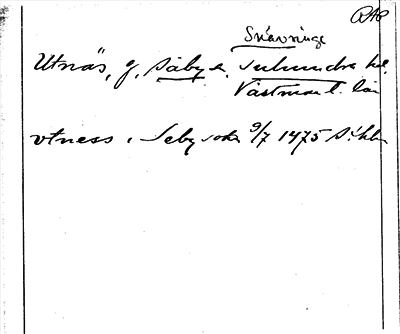 RAP
Snevringe
Utnäs, g, Säby s. Tuhundra hd.
Västmanl. län
vtness i Seby sokn 9/7 1475